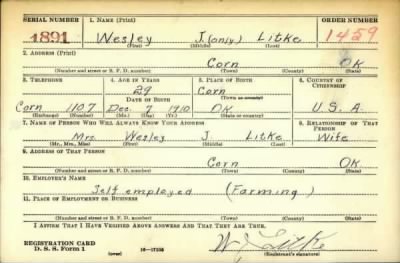 SERIAL NUMBER 1. NAME (Print) ORDER NUMBER
1891 Wesley J. (only) Litke 1459
(First) (Middle) (Last)
2. ADDRESS (Print)
Corn OK
(Number and street or R. F. D. number) (Town) (County) (State)
3. TELEPHONE 4. AGE IN YEARS 5. PLACE OF BIRTH 6. COUNTRY OF CITIZENSHIP
29 Corn
DATE OF BIRTH (Town or county)
Corn 1107 Dec. 9 1910 OK U.S.A.
(Exchange) (Number) (Mo.) (Day) (Yr.) (State or country)
7. NAME OF PERSON WHO WILL ALWAYS KNOW YOUR ADDRESS 8. RELATIONSHIP OF THAT PERSON
Mrs. Wesley J. Litke Wife
(Mr., Mrs., Miss) (First) (Middle) (Last)
9. ADDRESS OF THAT PERSON
Corn OK
(Number and street or R. F. D. number) (Town) (County) (State)
10. EMPLOYER'S NAME
Self employed (Farming)
11. PLACE OF EMPLOYMENT OR BUSINESS
(Number and street or R. F. D. number) (Town) (County) (State)
I AFFIRM THAT I HAVE VERIFIED ABOVE ANSWERS AND THAT THEY ARE TRUE.
REGISTRATION CARD
D. S. S. Form 1 (over) 16—17105 W J Litke
(Registrant's signature)